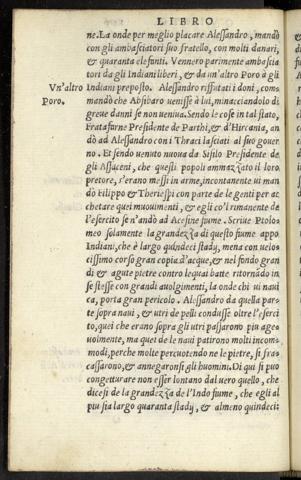 LIBRO
ne. La onde per meglio placare Alessandro, mandò
con gli ambasciatori suo fratello, con molti danari,
& quaranta elefanti. Vennero parimente ambascia
tori da gli Indiani liberi, & da un'altro Poro à gli
Vn'altro
Poro.
Indiani preposto. Alessandro rifiutati i doni, com❜
mandò che Absibaro uenisse à lui, minacciandolo di
greue danni se non ueniua. Sendo le cose in tal stato,
Frataferne Presidente de Parthi, & d'Hircania, an
dò ad Alessandro con i Thraci lasciati al suo gouer
no. Et sendo uenuto nuoua da Sisilo Presidente de
gli Assaceni, che questi popoli ammazzato il loro
pretore, s'erano messi in arme, incontanente ui man
dò Filippo & Theriespi con parte de le genti per ac
chetare quei mouimenti, & egli co'l rimanente de
l'esercito se n'andò ad Acesine fiume. Scriue Ptolo
meo solamente la grandezza di questo fiume appo
Indiani, che è largo quindeci stady, mena con uelo❜
cissimo corso gran copia d'acque, & nel fondo gran
di & agute pietre contro le quai batte ritornādo in
se stesse con grandi auolgimenti, la onde chi ui naui
ca, porta gran pericolo. Alessandro da quella par❜
te sopra naui, & utri de pelli condusse oltre l'eserci
to, quei che erano sopra gli utri passarono piu ageo
uolmente, ma quei de le naui patirono molti incom❜
modi, perche molte percuotendo ne le pietre, si fra❜
cassarono, & annegaronsi gli huomini. Di quì si può
congetturare non esser lontano dal uero quello, che
dicesi de la grandezza de l'Indo fiume, che egli al
piu sia largo quaranta stady, & almeno quindeci: